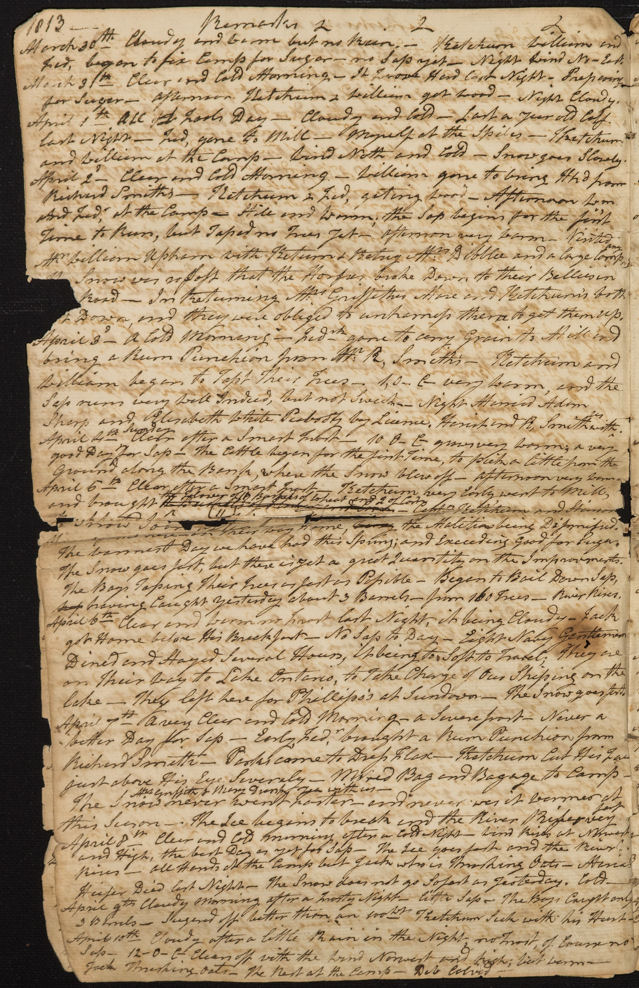 1813 — Remarks 2 2 2
March 30th Cloudy and warm but no Run. — Ketchum William and
Jed, began to fix Camp for Sugar — no Sap yet — Night wind No-East
March 31th Clear and Cold Morning — It Froze Hard last Night — Preparing
for Sugar — afternoon Ketchum & William got wood — Night Cloudy.
April 1st All Fools Day — Cloudy and Cold — Lost a year old Calf
last Night — Jed, gone to Mill — Myself at the Spiles — Ketchum
and William at the Camp — Wind Noth and Cold — Snow goes Slowly.
April 2d Clear and Cold Morning — William gone to bring from
Richard Smiths — Ketchum & Jed, geting wood — Afternoon
and Jed, at the Camp — Hile and warm, the Sap begins for the first
Time to Run, but Taped no Trees yet — afternoon very warm —
Mr. William Upham with Return & Betsy Mrs. Dibblee and a large
Snow was so Soft that the Horses broke Down to their Bellies in
Road — In Returning Mr. Griffiths Mare and Ketchum's both
Down, and they were obliged to unharness them to get them up.
April 3d — A Cold Morning — Jed.h gone to carry Grain to Mill and
bring a Rum Puncheon from Mr. R, Smith's — Ketchum and
William began to Tapt Their Trees — very warm, and the
Sap runs very Well Indeed, but not Sweet — Night Married Adam
Sharp and Elizabeth White Peabody by License, Henird and R. Smith
April 4th Sunday Clear after a Smart frost — 10 O-C grows very warm, a very
good Day for Sap — The Cattle began for the first Time, to pick a little from the
Ground along the Bank, where the Snow blew off — afternoon very warm —
April 5th Clear after a Smart frost — Ketchum very Early went to Mill,
and brought
the being Dignified.
The warmest Day we have had this Spring, and Exceeding good for Sugar
The Snow goes fast, but there is yet a great Quantity on the Improvements.
The Boys Taping Their Trees as fast as Possible — Began to Boil Down Sap,
having Caught yesterday about 3 Barrels — from 160 Trees — River Rises.
April 6th Clear and warm no frost last Night, it being Cloudy — Jack
got Home before His Breakfast — No Sap to Day — Eight Navy Gentlemen
Dined and Stayed Several Hours, it being to Soft to Travel, They are
on Their way to Lake Ontario, to Take Charge of Our Shiping on the
lake — They left here for Phillips's at Sundown — The Snow goes fast
April 7th A very Clear and Cold Morning — a Severe frost — Never a
better Day for Sap — Early Jed, brought a Rum Puncheon from
Richard Smith — came to Dress Flax — Ketchum Cut His Face
just above His Eye Severely — Moved Bag and Bagage to Camp —
Mrs Griffith & Mary Drank Tea with us —
The Snow never went faster — and never was it warmer at
this Season — The Ice begins to break and the River Rises very fast
April 8th Clear and Cold morning after a Cold Night — Wind Rises at Norwest
and High, the best Day as yet for Sap — The Ice goes fast and the River
Rises — all Hands at the Camp but Jack who is Thrashing Oats — A
Heifer Died last Night — The Snow does not go So fast as Yesterday. Cold —
April 9th Cloudy Morning after a frosty Night — little Sap — The Boys Caught only
2 Barrels — Sugar'd off better than an 100 lbs. Ketchum Sick with his Hurt —
April 10th Cloudy after a little Rain in the Night, no Frost, of Course no
Sap — 12-O-C Clears off with the wind Norwest and high, but warm —
Jack Thrashing oats — The Rest at the Camp — Deb